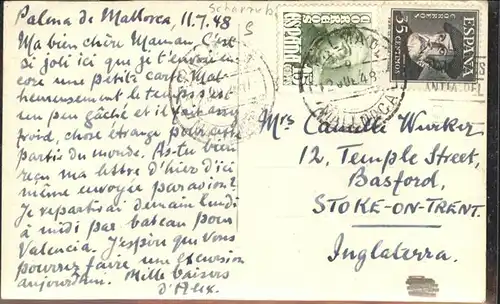 Scharrubi
Palma de Mallorca, 11.7.48
Ma bien chère Maman, C'est
si joli ici que je t'envoie en-
core une petite carte. Mal-
heureusement le temps s'est
un peu gâché et il fait
froid, chose étrange pour cette
partie du monde. As-tu bien
reçu ma lettre d'hier d'ici
même envoyée par avion?
Je repartirai demain lundi
à midi par bateau pour
Valencia. J'espère que vous
pourrez faire une excursion
aujourdui. Mille baisers
d'Alex.
CORREOS
ESPAÑA
CORREOS
35 CENTIMOS
ESPAÑA
JUL 48
MALLORCA
Mrs Camille Wurker
12, Temple Street,
Basford,
STOKE-ON-TRENT.
Inglaterra.